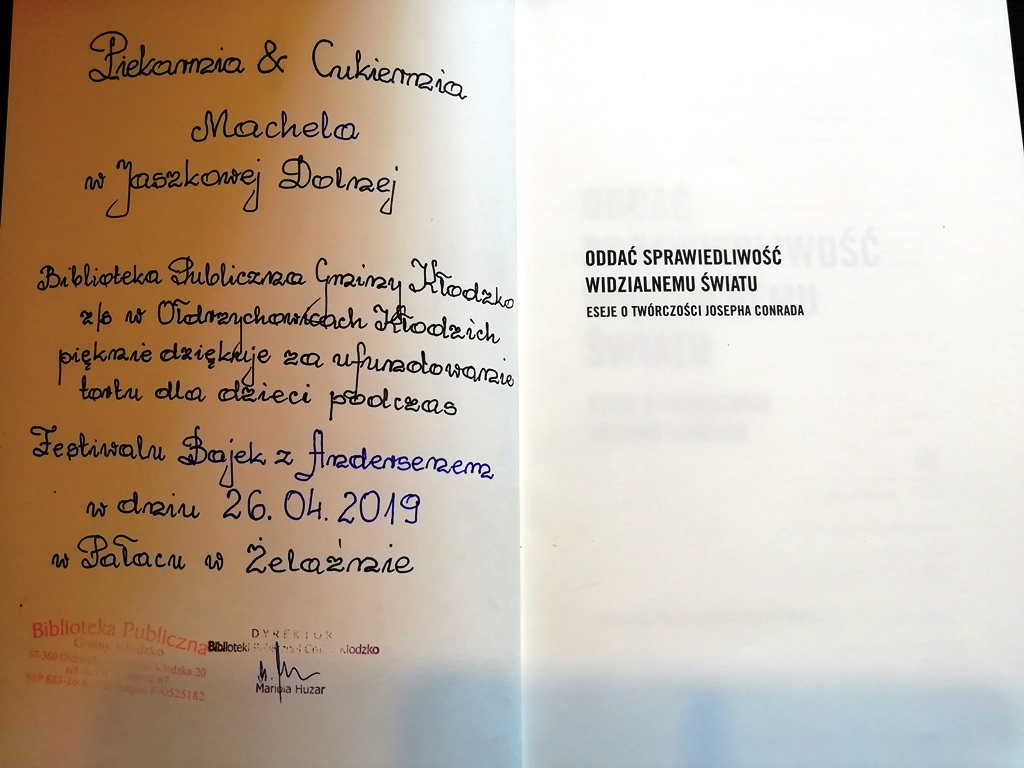 Piekarnia & Cukiernia
Machela
w Jaszkowej Dolnej
Biblioteka Publiczna Gminy Kłodzko
z/s w Ołdrzychowicach Kłodzkich
pięknie dziękuje za ufundowanie
tortu dla dzieci podczas
Festiwalu Bajek z Andersenem
w dniu 26.04.2019
w Pałacu w Żelaźnie
Biblioteka Publiczna
Gminy Kłodzko
57-360
20
NIP 883-16
DYREKTOR
Biblioteki Kłodzko
Huzar
ODDAĆ SPRAWIEDLIWOŚĆ
WIDZIALNEMU ŚWIATU
ESEJE O TWÓRCZOŚCI JOSEPHA CONRADA